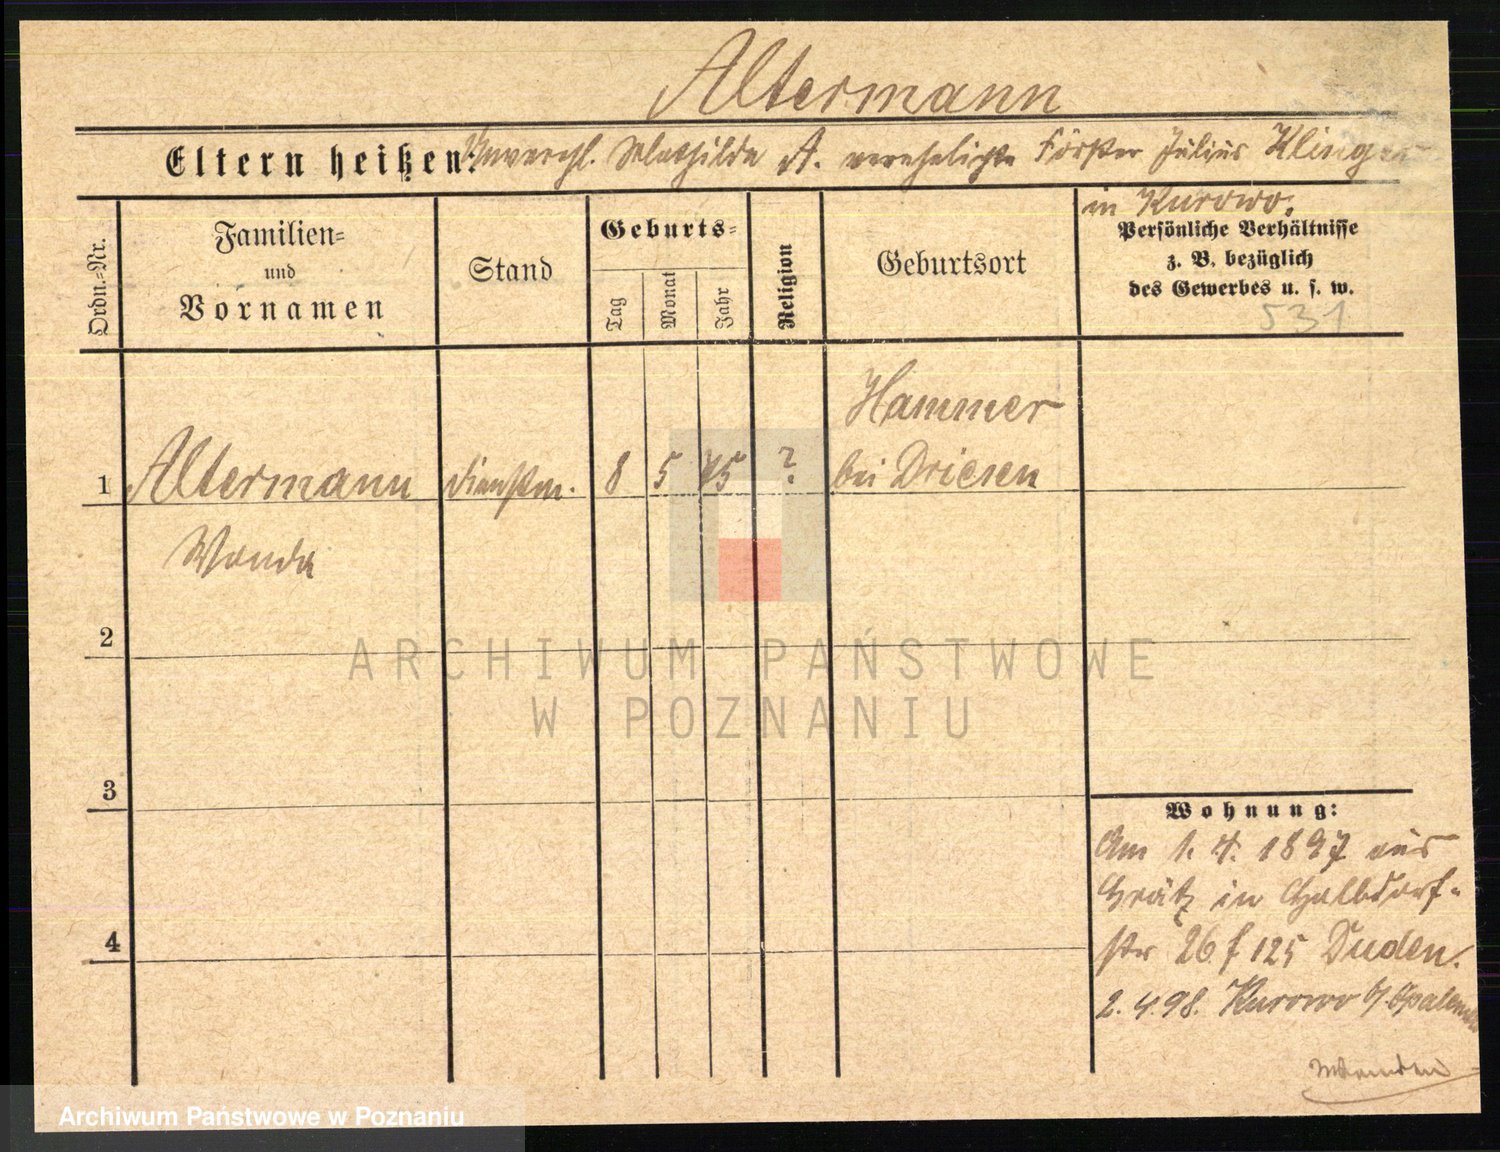 Altermann
Eltern heißen: Unverehl. Mathilde A. verehelichte Förster Julius Klinger
in Kurowo.
Ordn.-Nr.
Familien-
und
Vornamen
Stand
Geburts-
Tag
Monat
Jahr
Religion
Geburtsort
Persönliche Verhältnisse
z. B. bezüglich
des Gewerbes u. s. w.
531
Hammer
1 Altermann dienstm. 8 5 75 ? bei Driesen
Wanda
2
3
4
Wohnung:
Am 1. 4. 1897 aus
Grätz in Halbdorf-
str 26 f 125 Duden.
2.4.98. Kurowo b/ Opalenitza
ARCHIWUM PAŃSTWOWE
W POZNANIU
Archiwum Państwowe w Poznaniu